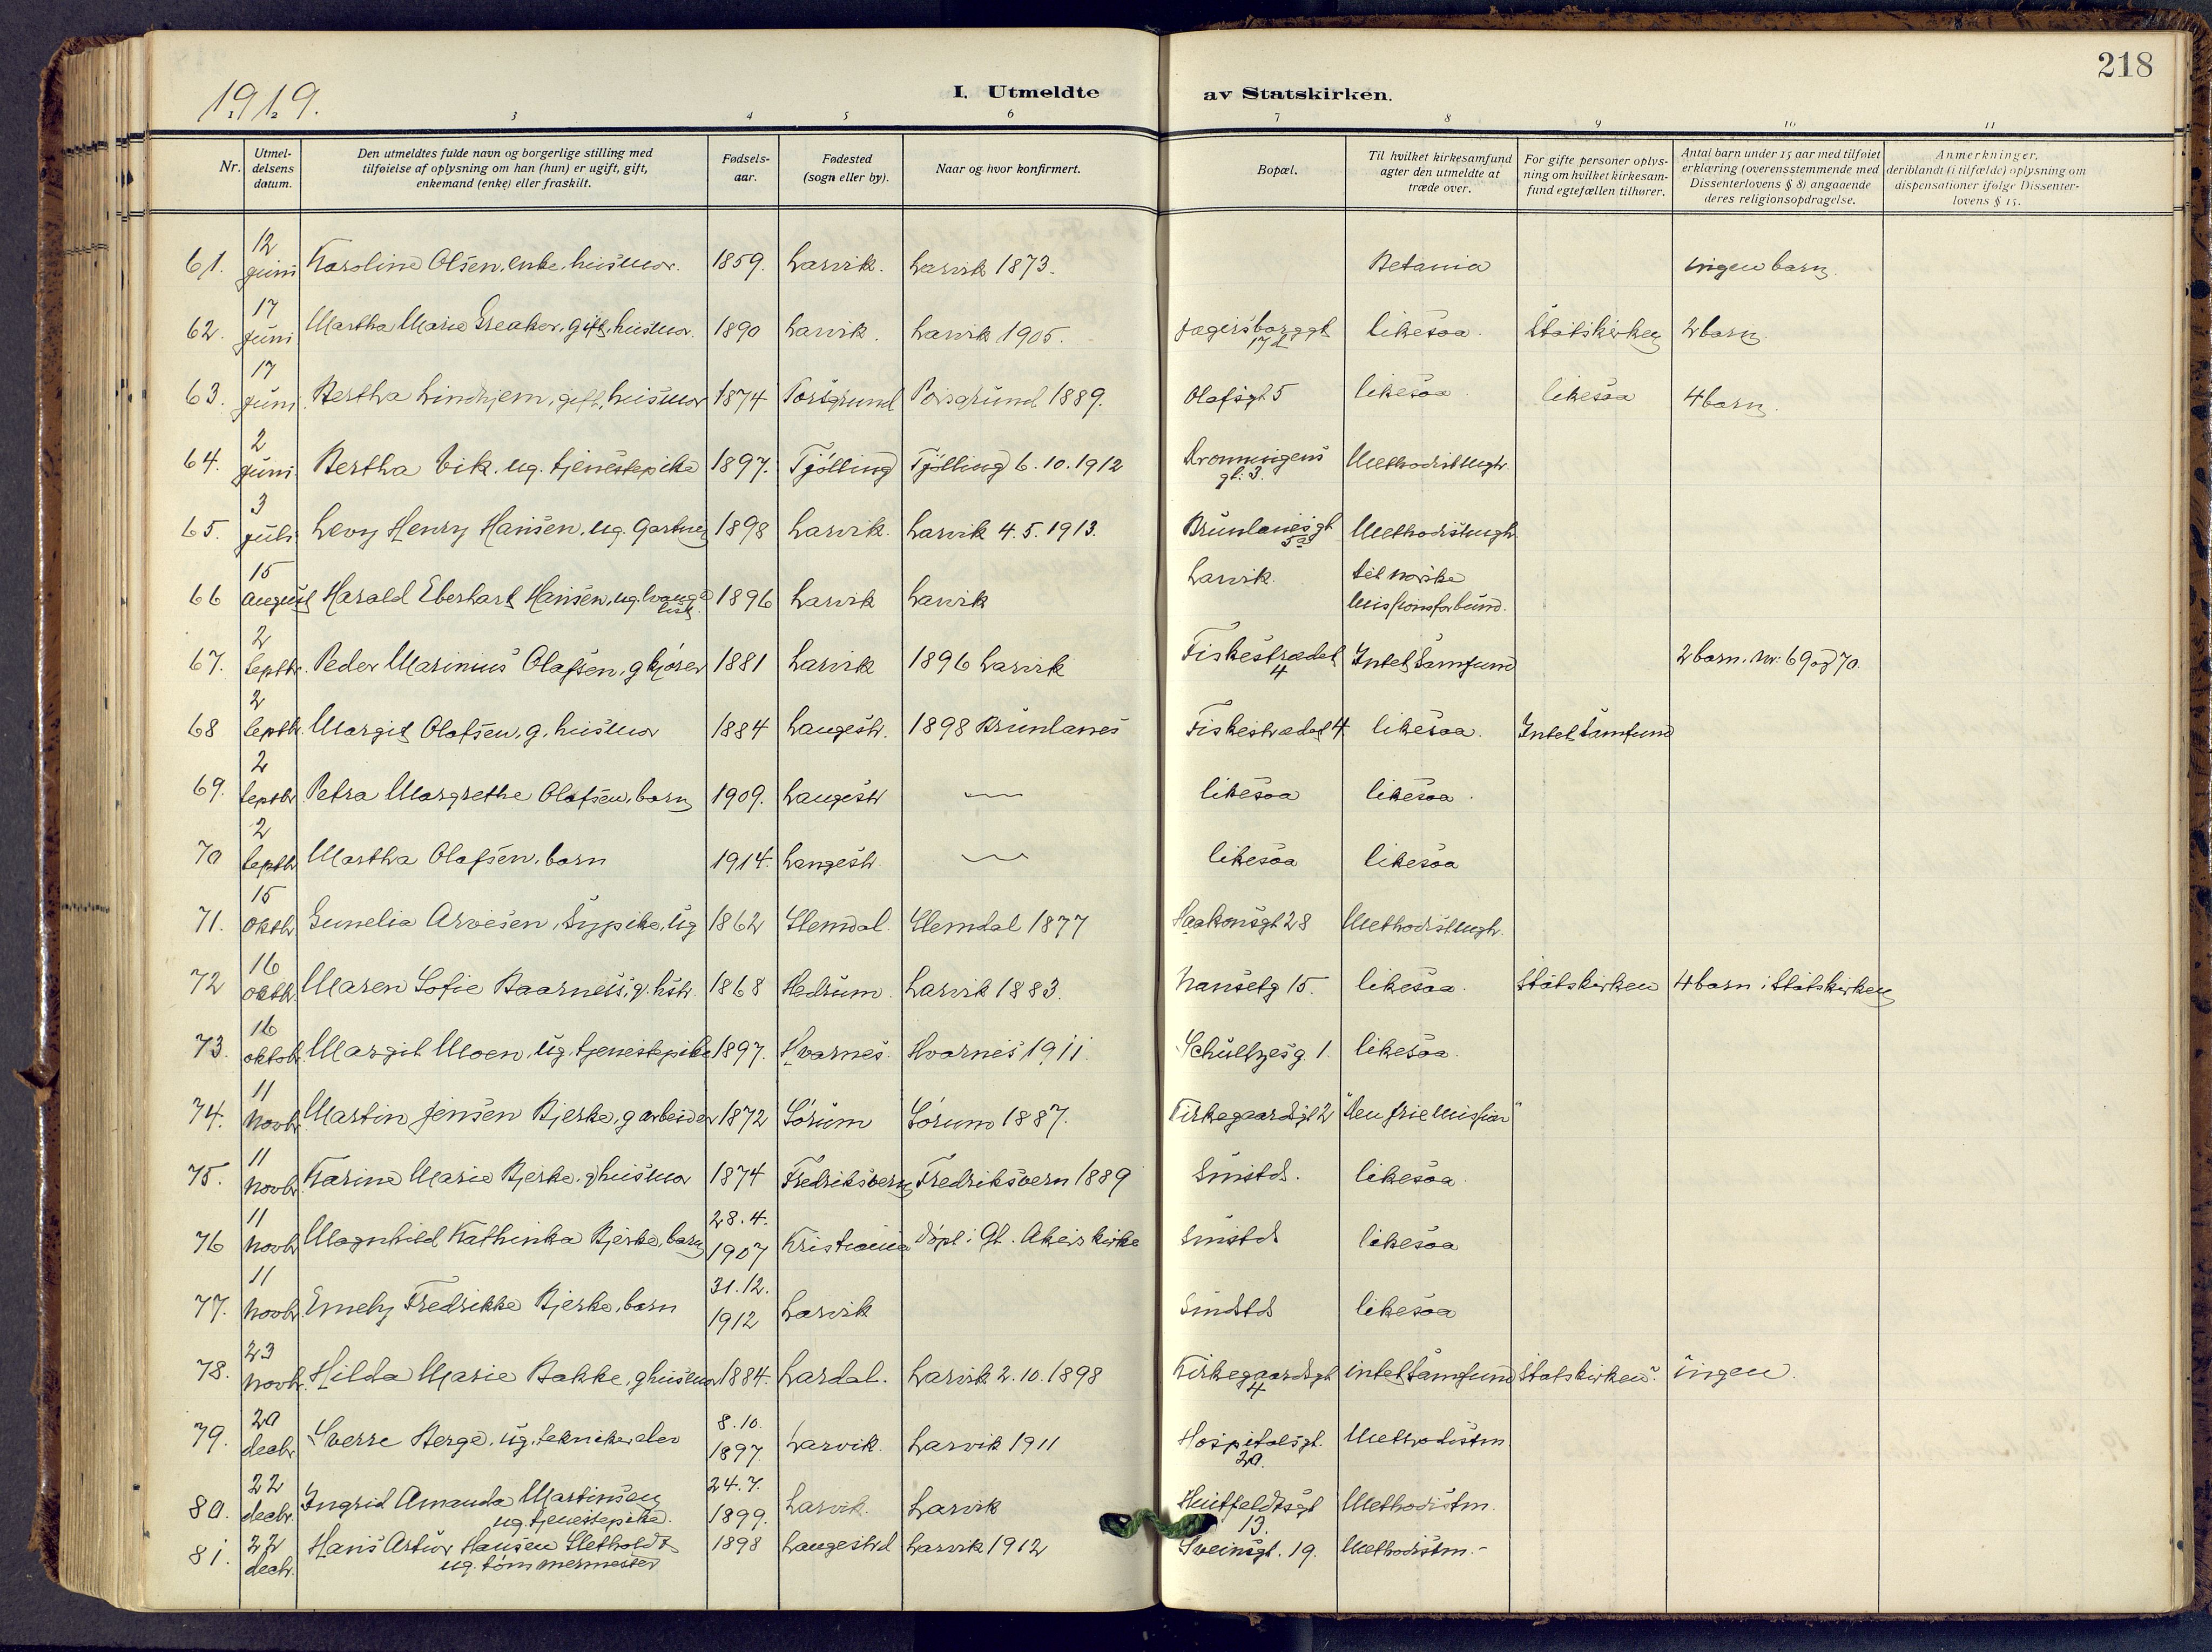 218
1919.
I. Utmeldte av Statskirken.
1 2 3 4 5 6 7 8 9 10 11
Nr. Utmeldelsens datum. Den utmeldtes fulde navn og borgerlige stilling med tilføielse af oplysning om han (hun) er ugift, gift, enkemand (enke) eller fraskilt. Fødselsaar. Fødested (sogn eller by). Naar og hvor konfirmert. Bopæl. Til hvilket kirkesamfund agter den utmeldte at træde over. For gifte personer oplysning om hvilket kirkesamfund egtefællen tilhører. Antal barn under 15 aar med tilføiet erklæring (overensstemmende med Dissenterlovens § 8) angaaende deres religionsopdragelse. Anmerkninger, deriblandt (i tilfælde) oplysning om dispensationer ifølge Dissenterlovens § 15.
61. 12 juni Karoline Olsen, enke, husmor. 1859. Larvik. Larvik 1873. Betania ingen barn.
62. 17 juni Martha Marie Greaker, gift, husmor. 1890 Larvik. Larvik 1905. Jegersborggt 17d likesaa. Statskirken 2 barn.
63. 17 juni Bertha Lindhjem, gift, husmor 1874 Porsgrund Porsgrund 1889. Olafsgt 5 likesaa. likesaa 4 barn.
64. 2 juni Bertha Vik, ug. tjenestepike 1897. Tjølling Tjølling 6.10.1912 Dronningens gt. 3. Methodistmgh.
65. 3 juli Levy Henry Hansen, ug. Gartner 1898 Larvik. Larvik 4.5.1913. Brunlanesgt 5a Methodistmgh.
66 15 august Harald Eberhart Hansen, ug. 1896 Larvik Larvik Larvik. Det norske Missionsforbund.
67. 2 septbr. Peder Marinius Olafsen, g kjører 1881 Larvik 1896 Larvik Fiskestrædet 4 Intet Samfund 2 barn. nr. 69 og 70.
68 2 septbr. Margit Olafsen, g. husmor 1884 Langestr. 1898 Brunlanes Fiskestrædet 4 likesaa. Intet Samfund
69. 2 septbr Petra Margrethe Olafsen, barn 1909. Langestr — likesaa likesaa.
70 2 septbr Martha Olafsen, barn 1914. Langestr. — likesaa likesaa
71. 15 oktbr Gunelia Arvesen, Sypike, ug 1862 Slemdal. Slemdal 1877 Haakonsgt 28 Methodistmgh.
72 16 oktbr. Maren Sofie Baarnes, g. hstr. 1868 Hedrum. Larvik 1883. Nansetg 15. likesaa. Statskirken 4 barn i Statskirken
73. 16 oktobr. Margit Moen, ug. tjenestepike 1897. Hvarnes. Hvarnes 1911. Schultzesg. 1. likesaa.
74. 11 Novbr. Martin Jensen Bjerke, g arbeider 1872 Sørum Sørum 1887. Kirkegaardsgt 2 "Den frie Mission"
75. 11 Novbr. Karine Marie Bjerke, g husmor 1874 Fredriksvern Fredriksvern 1889 Smstd. likesaa.
76 11 Novbr Magnhild Kathinka Bjerke, barn 28.4. 1907 Kristiania døpt i Gl. Akers kirke Smstd likesaa
77. 11 Novbr. Emely Fredrikke Bjerke, barn 31.12. 1912 Larvik Smstd likesaa
78. 23 Novbr. Hilda Marie Bakke, g husmor 1884. Lardal. Larvik 2.10.1898 Kirkegaardsgt 4 intet Samfund Statskirken ingen.
79. 20 decbr. Sverre Berge, ug. teknikerelev 8.10. 1897. Larvik. Larvik 1911 Hospitalsgt. 20. Methodistm.
80. 22 decbr. Ingrid Amanda Martinsen ug. tjenestepike. 24.7. 1899. Larvik. Larvik Huitfeldtsgt 13. Methodistm.
81. 22 decbr. Hans Artur Hansen Sletholdt ug. tømmermester 1898 Langestrd Larvik 1912 Sveinsgt. 19. Methodistm.